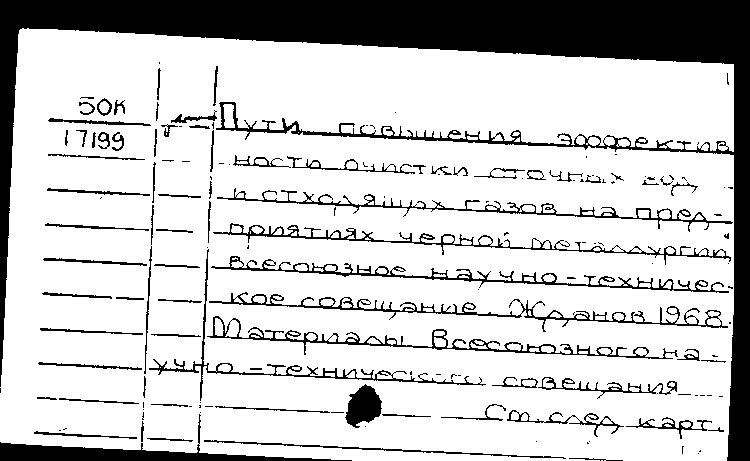 50К
17199
Пути повышения эффектив
ности очистки сточных вод
и отходящих газов на пред-
приятиях черной металлургии,
всесоюзное научно-техничес-
кое совещание. Жданов 1968.
Материалы Всесоюзного на-
учно-технического совещания
См. след. карт.